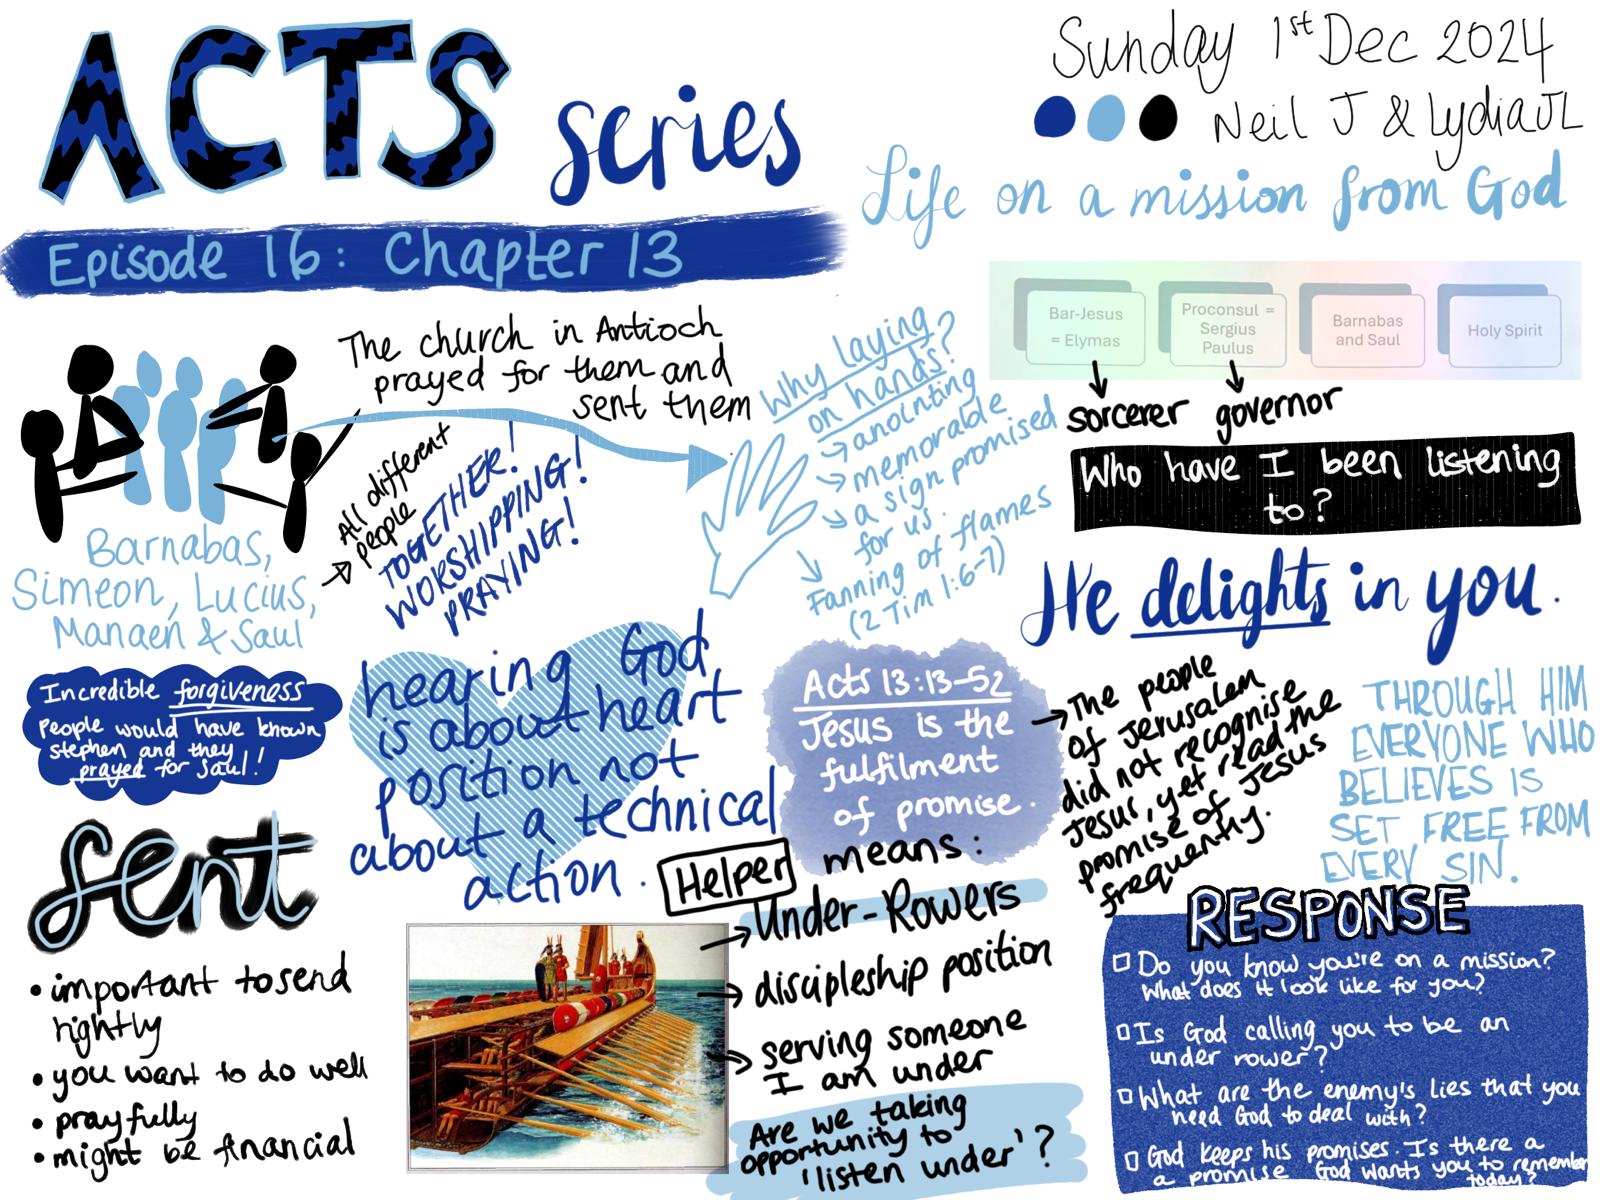 ACTS series
Sunday 1st Dec 2024
Neil J & Lydia JL
Life on a mission from God
Episode 16: Chapter 13
The church in Antioch
prayed for them and
sent them
Barnabas,
Simeon, Lucius,
Manaen & Saul
All different
people
TOGETHER!
WORSHIPPING!
PRAYING!
Why laying
on hands?
anointing
memorable
a sign promised
for us.
Fanning of flames
(2 Tim 1:6-7)
Bar-Jesus
= Elymas
Proconsul =
Sergius
Paulus
Barnabas
and Saul
Holy Spirit
sorcerer
governor
Who have I been listening
to?
He delights in you.
Incredible forgiveness
People would have known
stephen and they
prayed for Saul!
hearing God
is about heart
position not
about a technical
action.
Acts 13:13-52
Jesus is the
fulfilment
of promise.
The people
of Jerusalem
did not recognise
Jesus, yet read the
promise of Jesus
frequently.
THROUGH HIM
EVERYONE WHO
BELIEVES IS
SET FREE FROM
EVERY SIN.
sent
• important to send
rightly
• you want to do well
• prayfully
• might be financial
Helper means:
Under-Rowers
discipleship position
serving someone
I am under
Are we taking
opportunity to
'listen under'?
RESPONSE
Do you know you're on a mission?
What does it look like for you?
Is God calling you to be an
under rower?
What are the enemy's lies that you
need God to deal with?
God keeps his promises. Is there a
a promise God wants you to remember
today?